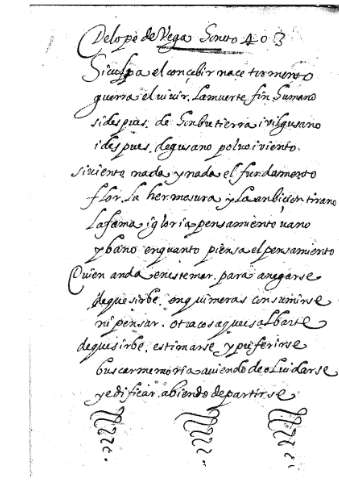 De lope de Vega Soneto 403
Si culpa el conçebir nace tormento
guerra el viuir. la muerte fin humano
si despues. de hombre tierra i vil gusano
i despues. de gusano poluo i viento.
si viento nada y nada el fundamento
flor. la hermosura y la anbicion tirano
la fama i gloria pensamiento uano
y bano en quanto piensa el pensamiento
Quien anda en este mar. para anegarse
de que sirbe. en quimeras consumirse
ni pensar. otra cosa que salbarse
de que sirbe. estimarse y preferirse
buscar memoria auiendo de oluidarse
y edificar. abiendo de partirse